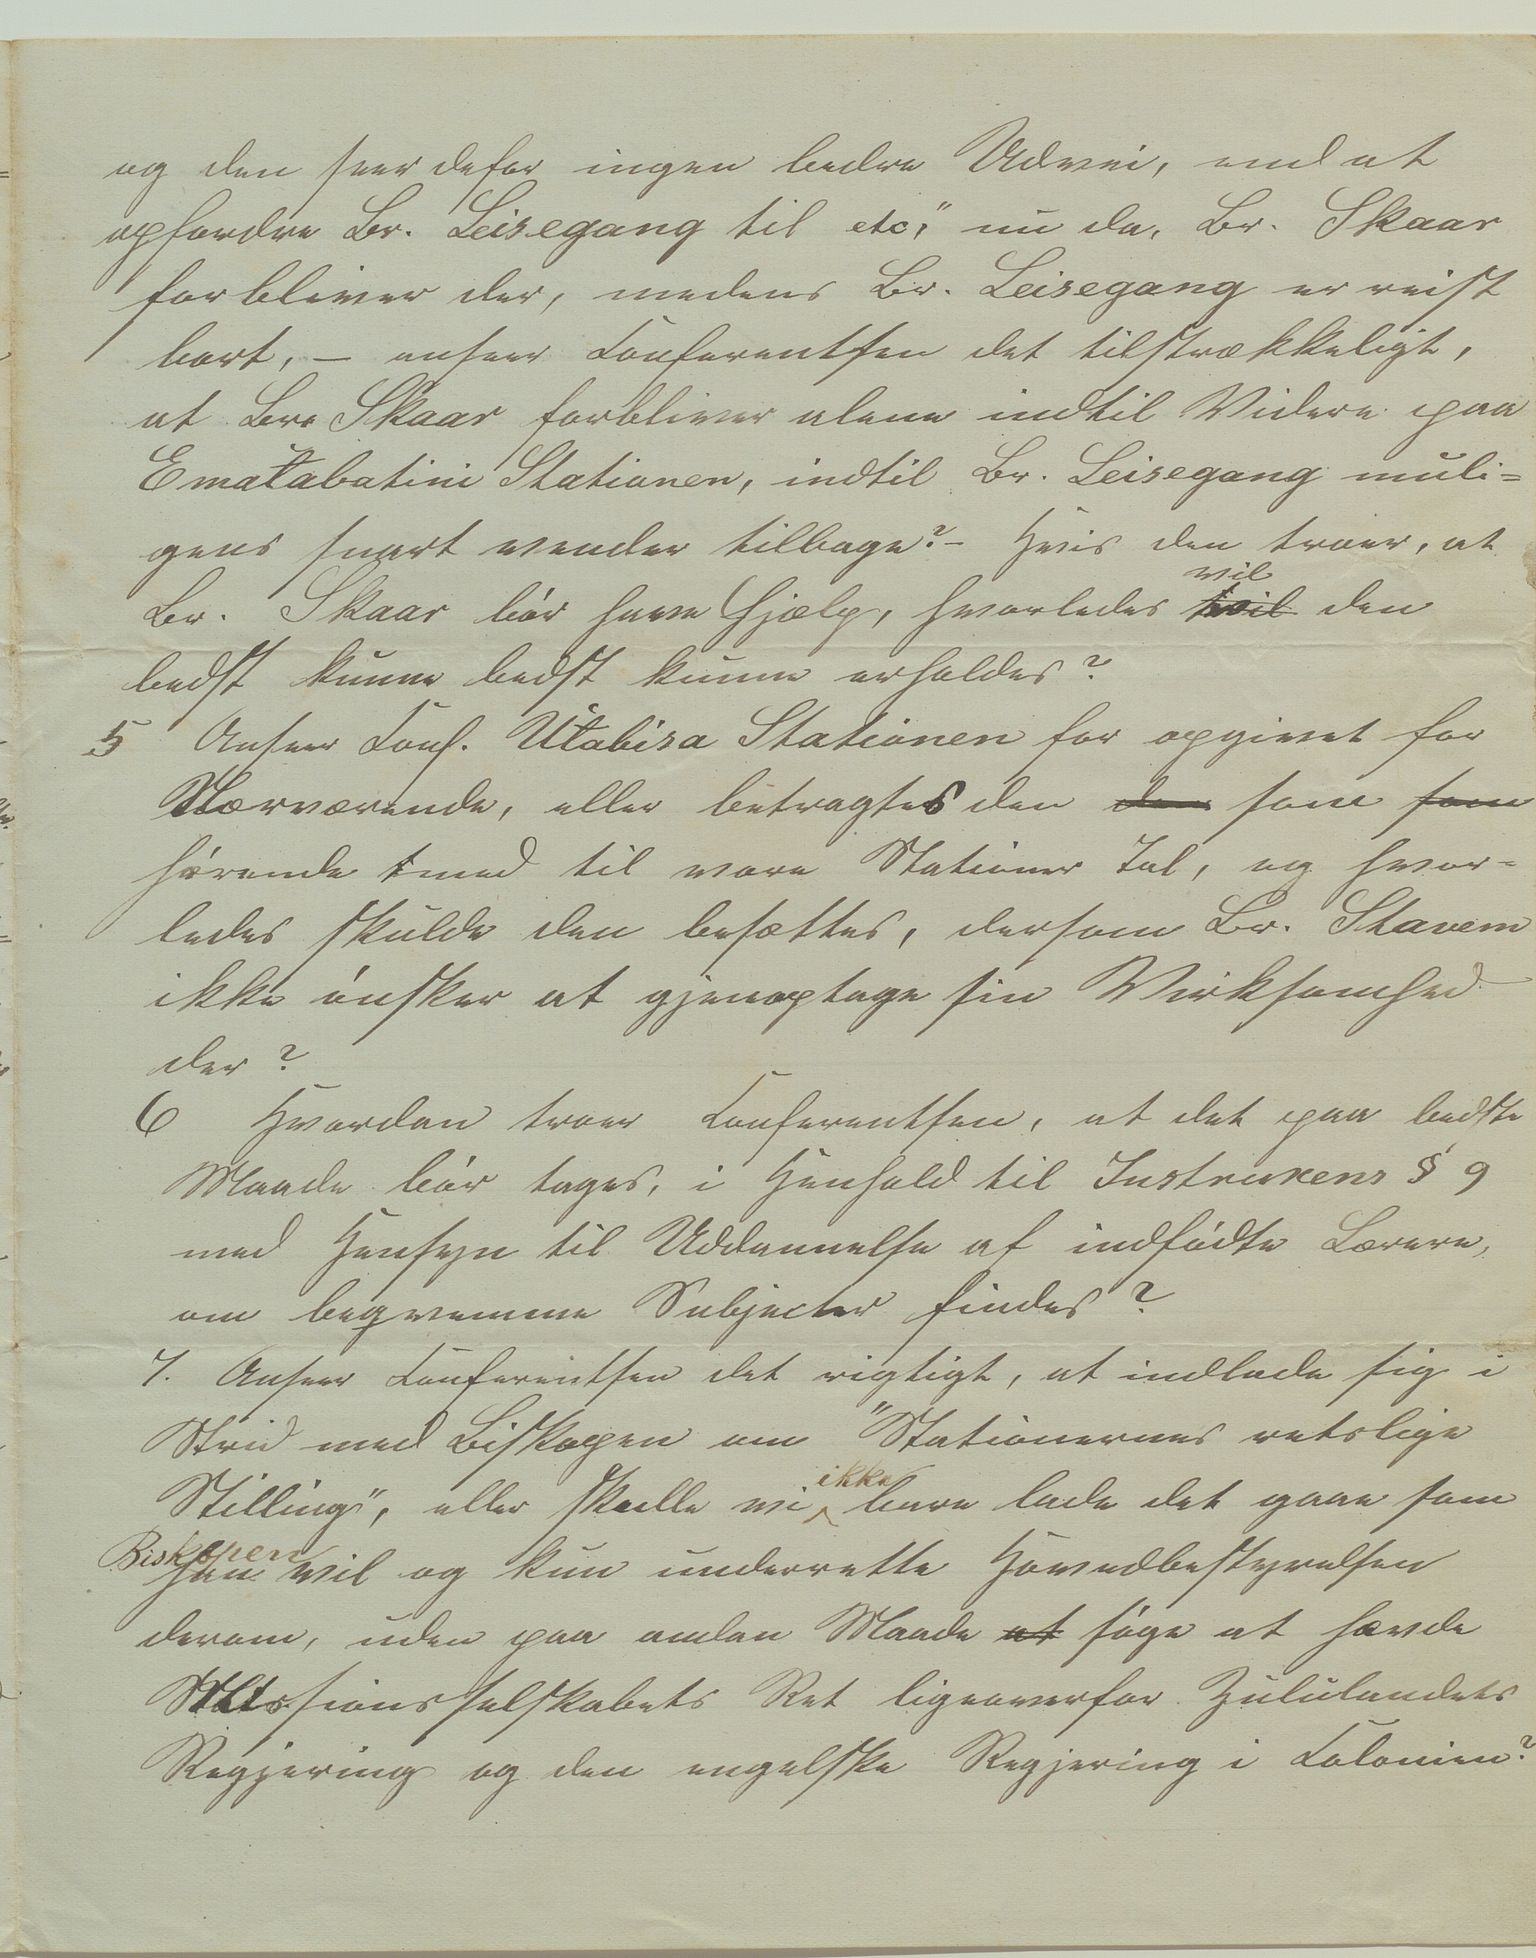 og den seer defor ingen bedre Udvei, end at
opfordre Br. Leisegang til etc," nu da, Br. Skaar
forbliver der, medens Br. Leisegang er reist
bort, — anseer Conferentsen det tilstrækkeligt,
at Br. Skaar forbliver alene indtil Videre paa
Ematabatini Stationen, indtil Br. Leisegang muli=
gens snart vender tilbage? – Hvis den troer, at
Br. Skaar bör have Hjælp, hvorledes vil den
bedst kunne bedst kunne erholdes?
5 Anseer Conf. Utabisa Stationen for opgivet for
Nærværende, eller betragtes den den som som
hörende med til vore Stationer Tal, og hvor=
ledes skulde den besættes, dersom Br. Stavem
ikke önsker at gjenoptage sin Virksomhed
der?
6 Hvordan troer Conferentsen, at det paa bedste
Maade bör tages, i Henhold til Instruxens § 9
med Hensyn til Uddannelse af indfödte Lærere,
om beqvemme Subjecter findes?
7. Anseer Conferentsen det rigtigt, at indlade sig i
Strid med Biskopen om "Stationernes retslige
Stilling", eller skulle vi ikke bare lade det gaae som
Biskopen han vil og kun underrette Hovedbestyrelsen
derom, uden paa anden Maade at söge at hævde
Missionsselskabets Ret ligeoverfor Zululandets
Regjering og den engelske Regjering i Colonien?